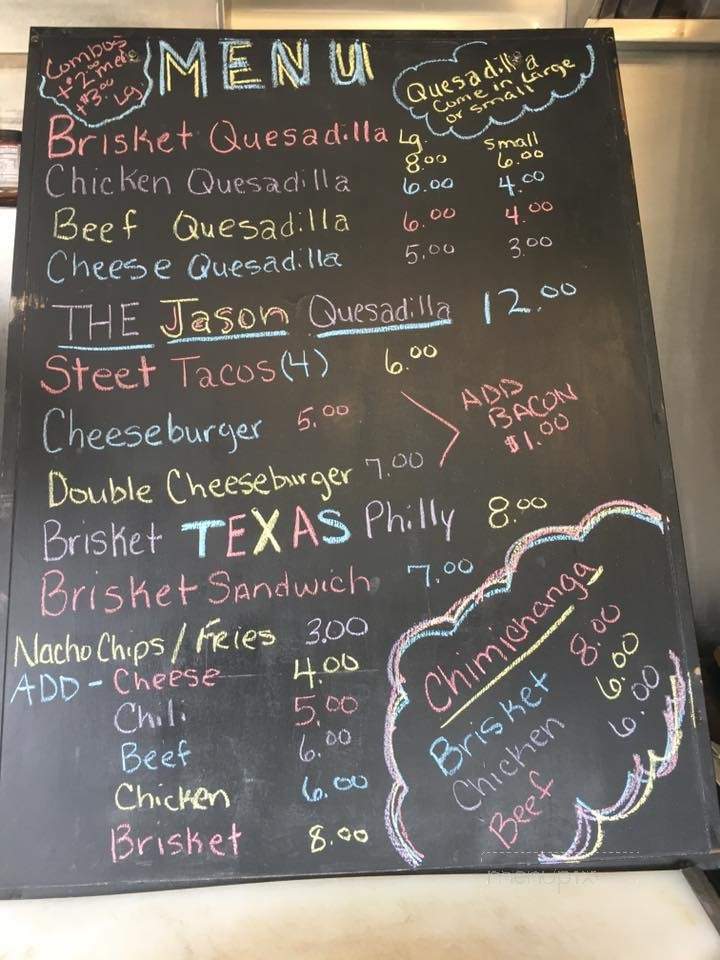 Combos
+ $2.00 meat
+ $3.00 Lg
MENU
Quesadilla
come in Large
or small
Brisket Quesadilla Lg. 8.00 small 6.00
Chicken Quesadilla 6.00 4.00
Beef Quesadilla 6.00 4.00
Cheese Quesadilla 5.00 3.00
THE Jason Quesadilla 12.00
Steet Tacos (4) 6.00
Cheeseburger 5.00
ADD
BACON
$1.00
Double Cheeseburger 7.00
Brisket TEXAS Philly 8.00
Brisket Sandwich 7.00
Nacho Chips / Fries 3.00
ADD - Cheese 4.00
Chili 5.00
Beef 6.00
Chicken 6.00
Brisket 8.00
Chimichanga
Brisket 8.00
Chicken 6.00
Beef 6.00